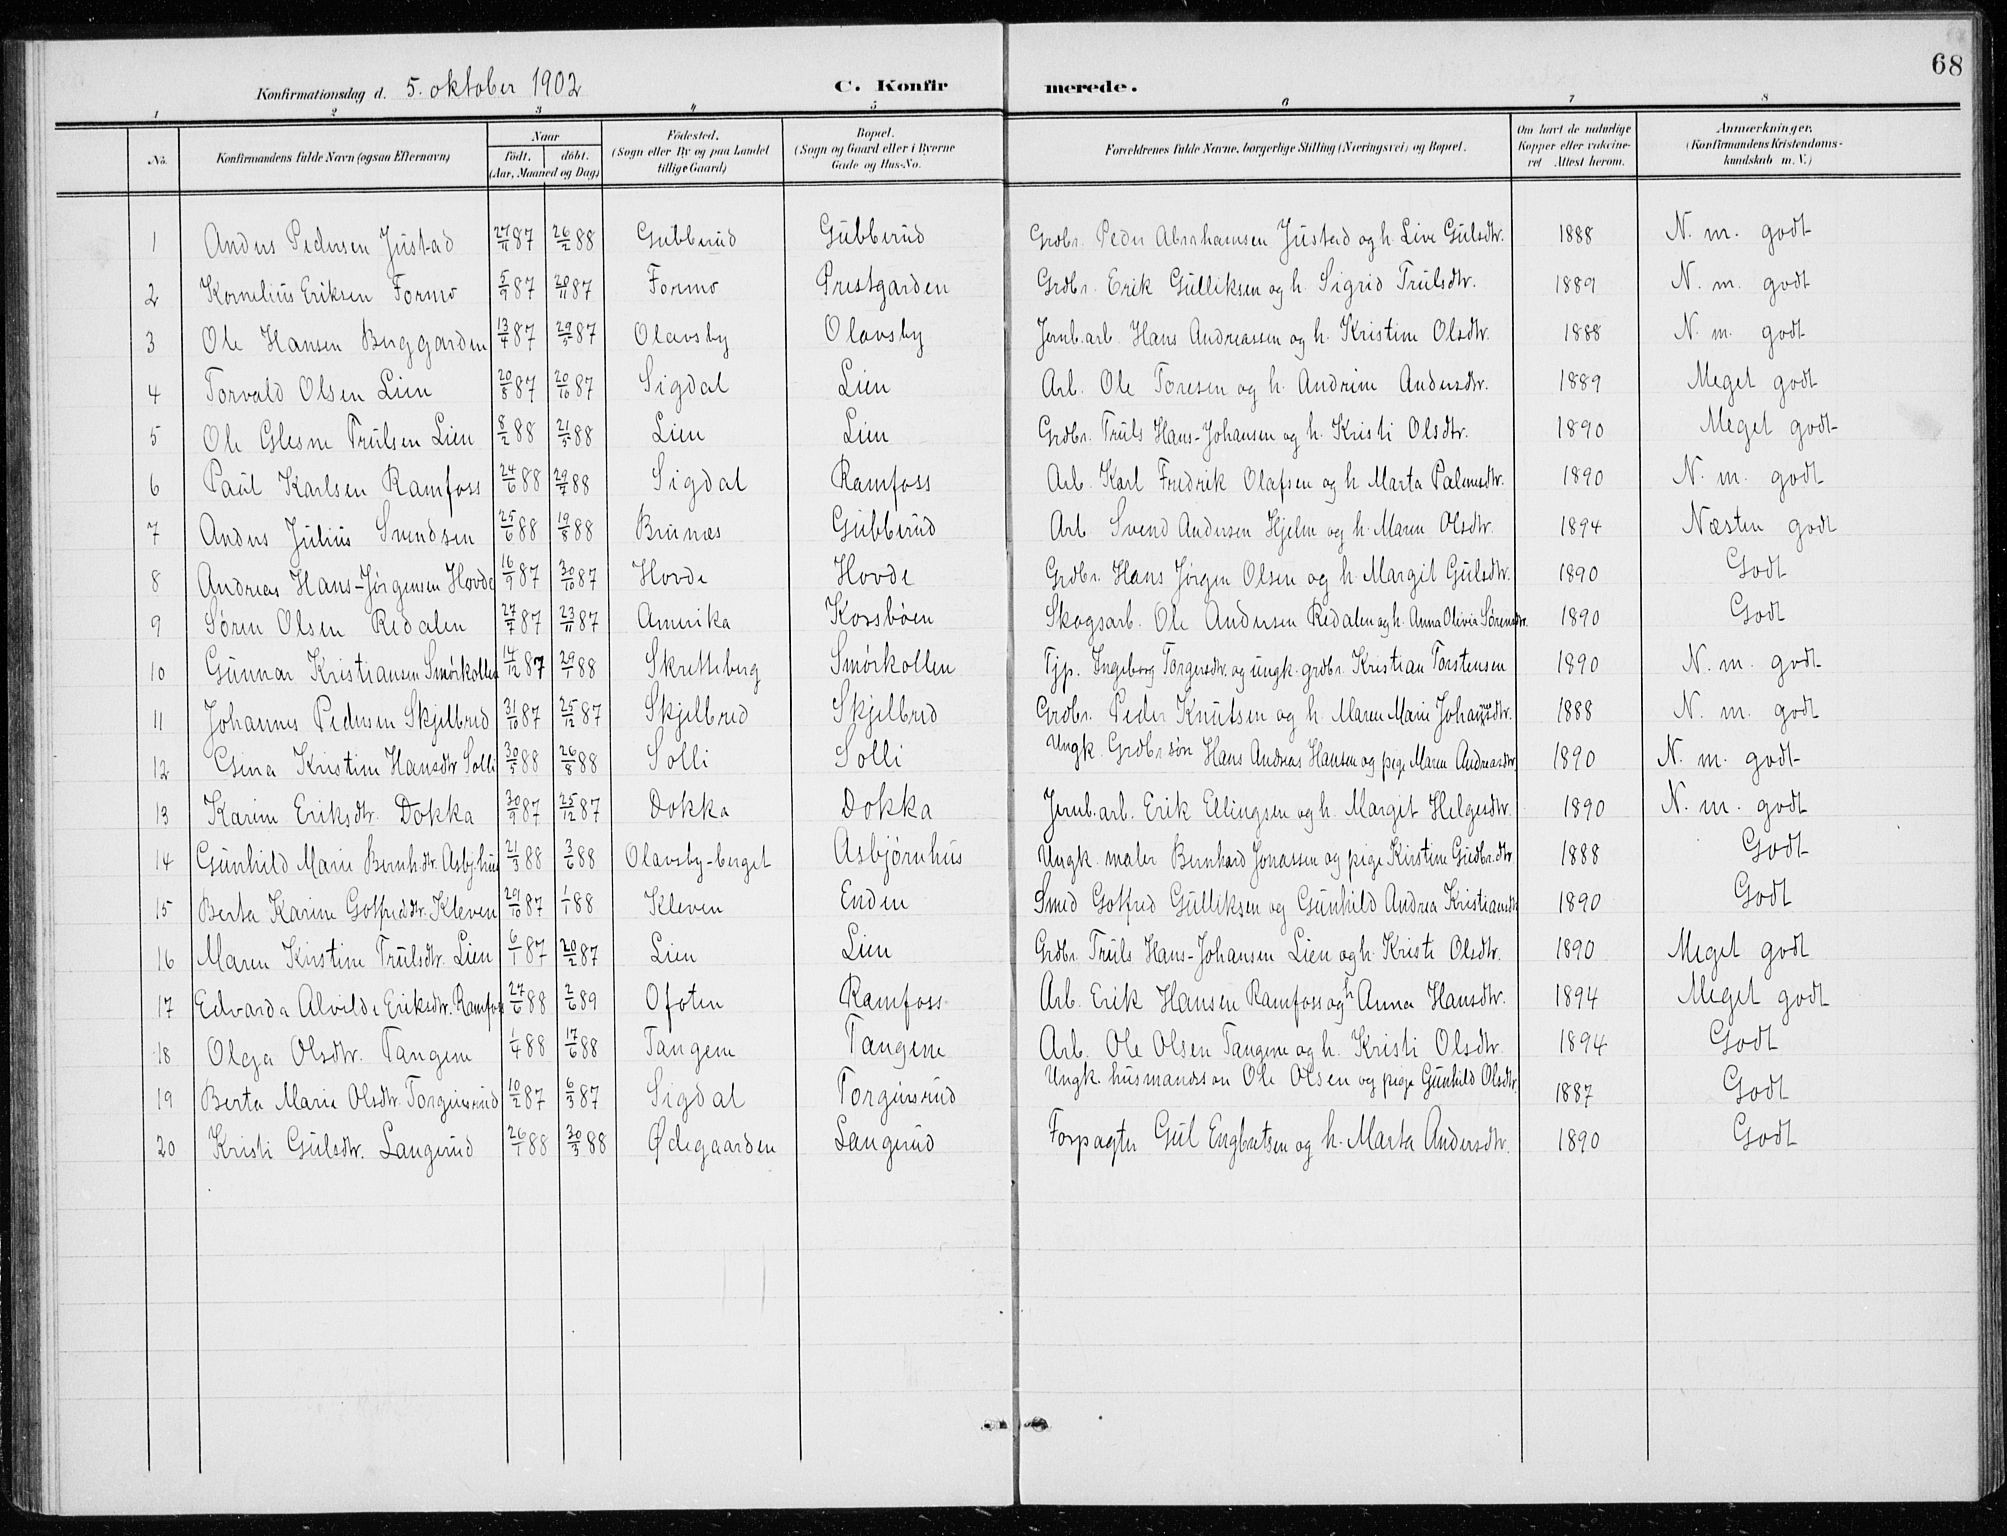 68
Konfirmationsdag d. 5. oktober 1902 C. Konfirmerede.
1 2 3 4 5 6 7 8
No. Konfirmandens fulde Navn (ogsaa Efternavn) Naar født. døbt. (Aar, Maaned og Dag) Födested. (Sogn eller By og paa Landet tillige Gaard) Bopæl. (Sogn og Gaard eller i Byerne Gade og Hus-No. Forældrenes fulde Navne, borgerlige Stilling (Næringsvei) og Bopæl. Om havt de naturlige Kopper eller vaccineret Attest herom. Anmærkninger. (Konfirmandens Kristendomskundskab m. V.)
1 Anders Pedersen Justad 27/11 87 26/2 88 Gubberud Gubberud Grdbr. Peder Abrahamsen Justad og h. Live Gulsdtr. 1888 N. m. godt
2 Kornelius Eriksen Formo 5/9 87 20/11 87 Formo Prestgarden Grdbr. Erik Gulliksen og h. Sigrid Trulsdtr. 1889 N. m. godt
3 Ole Hansen Berggarden 13/4 87 29/5 87 Olavsby Olavsby Jernb.arb. Hans Andreassen og h. Kristine Olsdtr. 1888 N. m. godt
4 Torvald Olsen Lien 20/8 87 20/10 87 Sigdal Lien Arb. Ole Toresen og h. Andrine Andersdtr. 1889 Meget godt
5 Ole Glesne Trulsen Lien 8/2 88 21/5 88 Lien Lien Grdbr. Truls Hans-Johansen og h. Kristi Olsdtr. 1890 Meget godt
6 Paul Karlsen Ramfoss 24/6 88 29/7 88 Sigdal Ramfoss Arb. Karl Fredrik Olafsen og h. Marta Palmesdtr. 1890 N. m. godt
7 Anders Julius Svendsen 25/6 88 19/8 88 Brunes Gubberud Arb. Svend Andersen Hjelm og h. Maren Olsdtr. 1894 Næsten godt
8 Andreas Hans-Jørgensen Hovde 16/9 87 30/10 87 Hovde Hovde Grdbr. Hans Jørgen Olsen og h. Margit Gulsdtr. 1890 Godt
9 Søren Olsen Redalen 27/7 87 23/11 87 Amerika Korsbøen Skogsarb. Ole Andersen Redalen og h. Anna Olivia Sørensdtr. 1890 Godt
10 Gunnar Kristiansen Smørkollen 14/12 87 29/1 88 Skretteberg Smørkollen Tjp. Ingeborg Torgersdtr. og ungk. grdbr. Kristian Torstensen 1890 N. m. godt
11 Johannes Pedersen Skjelbred 31/10 87 25/12 87 Skjelbred Skjelbred Grdbr. Peder Knutsen og h. Maren Marie Johannesdtr. 1888 N. m. godt
12 Gina Kristine Hansdtr Solli 30/5 88 26/8 88 Solli Solli Ungk. Grdbr søn Hans Andreas Hansen og pige Maren Andreasdtr. 1890 N. m. godt
13 Karine Eriksdtr. Dokka 30/9 87 25/12 87 Dokka Dokka Jernb.arb. Erik Ellingsen og h. Margit Helgesdtr. 1890 N. m. godt
14 Gunhild Marie Bernh.dtr. Asbj.hus 21/3 88 3/6 88 Olavsby-berget Asbjørnhus Ungk. maler Bernhard Jonassen og pige Kirstine Gudbr.dtr. 1888 Godt
15 Berta Karine Gotfreddtr. Kleven 29/10 87 1/1 88 Kleven Enden Smed Gotfred Gulliksen og Gunhild Andrea Kristiansdtr. 1890 Godt
16 Maren Kristine Trulsdtr. Lien 6/1 87 20/2 87 Lien Lien Grdbr. Truls Hans-Johansen Lien og h. Kristi Olsdtr. 1890 Meget godt
17 Edvarda Alvilde Eriksdtr. Ramfoss 27/6 88 2/6 89 Ofoten Ramfoss Arb. Erik Hansen Ramfoss og h Anna Hansdtr. 1894 Meget godt
18 Olga Olsdtr. Tangene 1/4 88 17/6 88 Tangene Tangene Arb. Ole Olsen Tangene og h. Kristi Olsdtr. 1894 Godt
19 Berta Marie Olsdtr. Torgunrud 10/2 87 6/3 87 Sigdal Torgunrud Ungk. husmandssøn Ole Olsen og pige Gunhild Olsdtr. 1887 Godt
20 Kristi Gulsdtr. Langerud 26/1 88 30/3 88 Ødegaarden Langerud Forpagter Gul Engbretsen og h. Marta Andersdtr. 1890 Godt